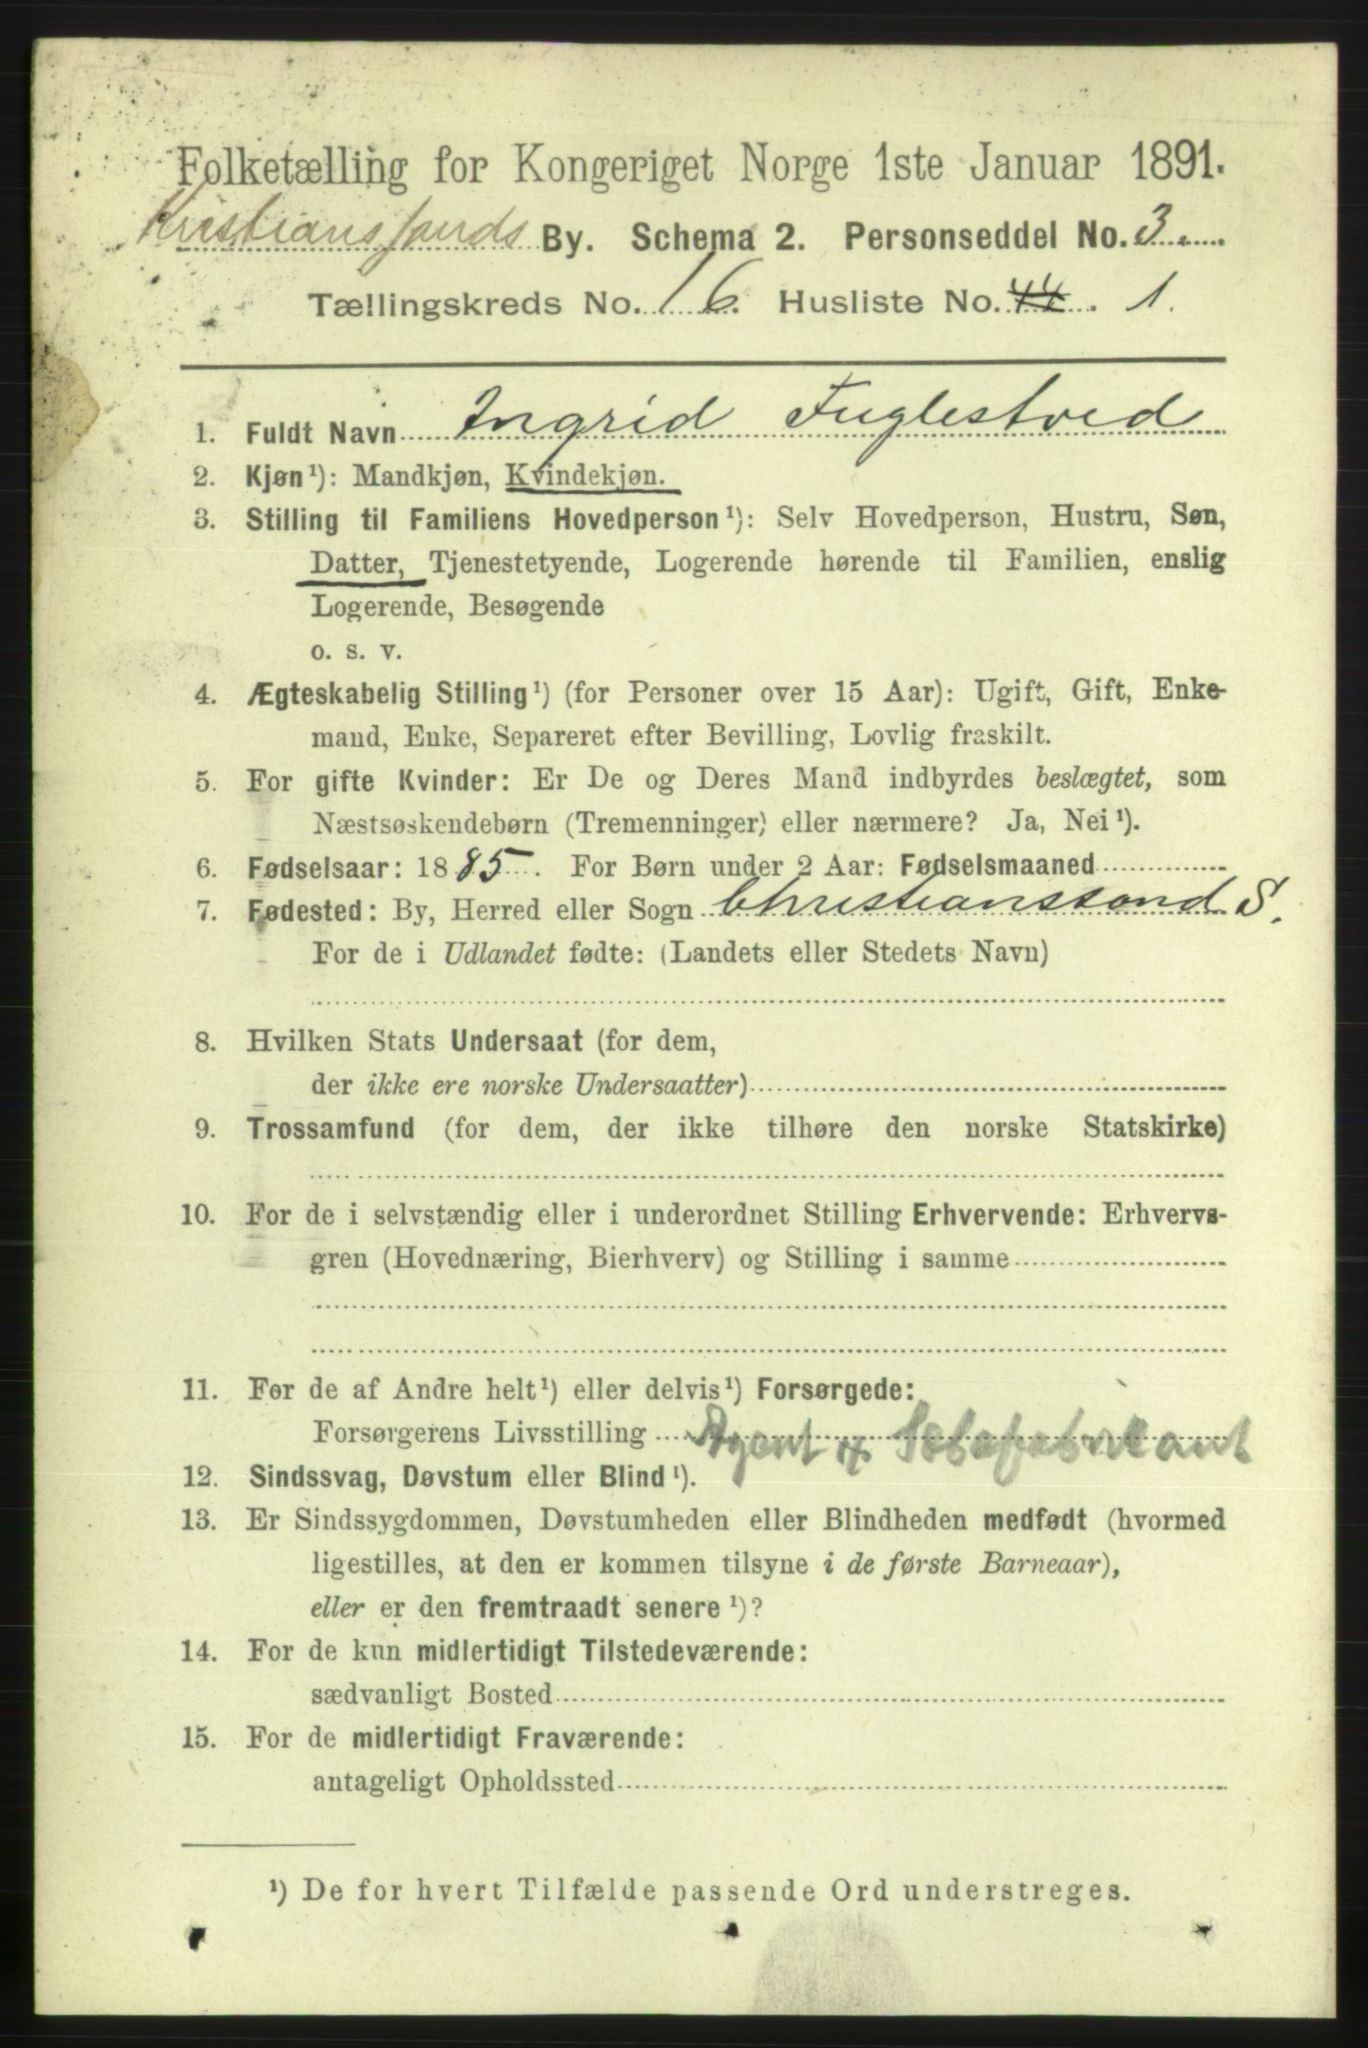 Folketælling for Kongeriget Norge 1ste Januar 1891.
Kristianssands By. Schema 2. Personseddel No. 3.
Tællingskreds No. 16. Husliste No. 44. 1.
1. Fuldt Navn Ingrid Fuglestved
2. Kjøn¹): Mandkjøn, Kvindekjøn.
3. Stilling til Familiens Hovedperson¹): Selv Hovedperson, Hustru, Søn,
Datter, Tjenestetyende, Logerende hørende til Familien, enslig
Logerende, Besøgende
o. s. v.
4. Ægteskabelig Stilling¹) (for Personer over 15 Aar): Ugift, Gift, Enke-
mand, Enke, Separeret efter Bevilling, Lovlig fraskilt.
5. For gifte Kvinder: Er De og Deres Mand indbyrdes beslægtet, som
Næstsøskendebørn (Tremenninger) eller nærmere? Ja, Nei¹).
6. Fødselsaar: 1885. For Børn under 2 Aar: Fødselsmaaned
7. Fødested: By, Herred eller Sogn Christianssand S.
For de i Udlandet fødte: (Landets eller Stedets Navn)
8. Hvilken Stats Undersaat (for dem,
der ikke ere norske Undersaatter)
9. Trossamfund (for dem, der ikke tilhøre den norske Statskirke)
10. For de i selvstændig eller i underordnet Stilling Erhvervende: Erhvervs-
gren (Hovednæring, Bierhverv) og Stilling i samme
11. For de af Andre helt¹) eller delvis¹) Forsørgede:
Forsørgerens Livsstilling Agent & Sæbefabrikant
12. Sindssvag, Døvstum eller Blind¹).
13. Er Sindssygdommen, Døvstumheden eller Blindheden medfødt (hvormed
ligestilles, at den er kommen tilsyne i de første Barneaar),
eller er den fremtraadt senere¹)?
14. For de kun midlertidigt Tilstedeværende:
sædvanligt Bosted
15. For de midlertidigt Fraværende:
antageligt Opholdssted
¹) De for hvert Tilfælde passende Ord understreges.